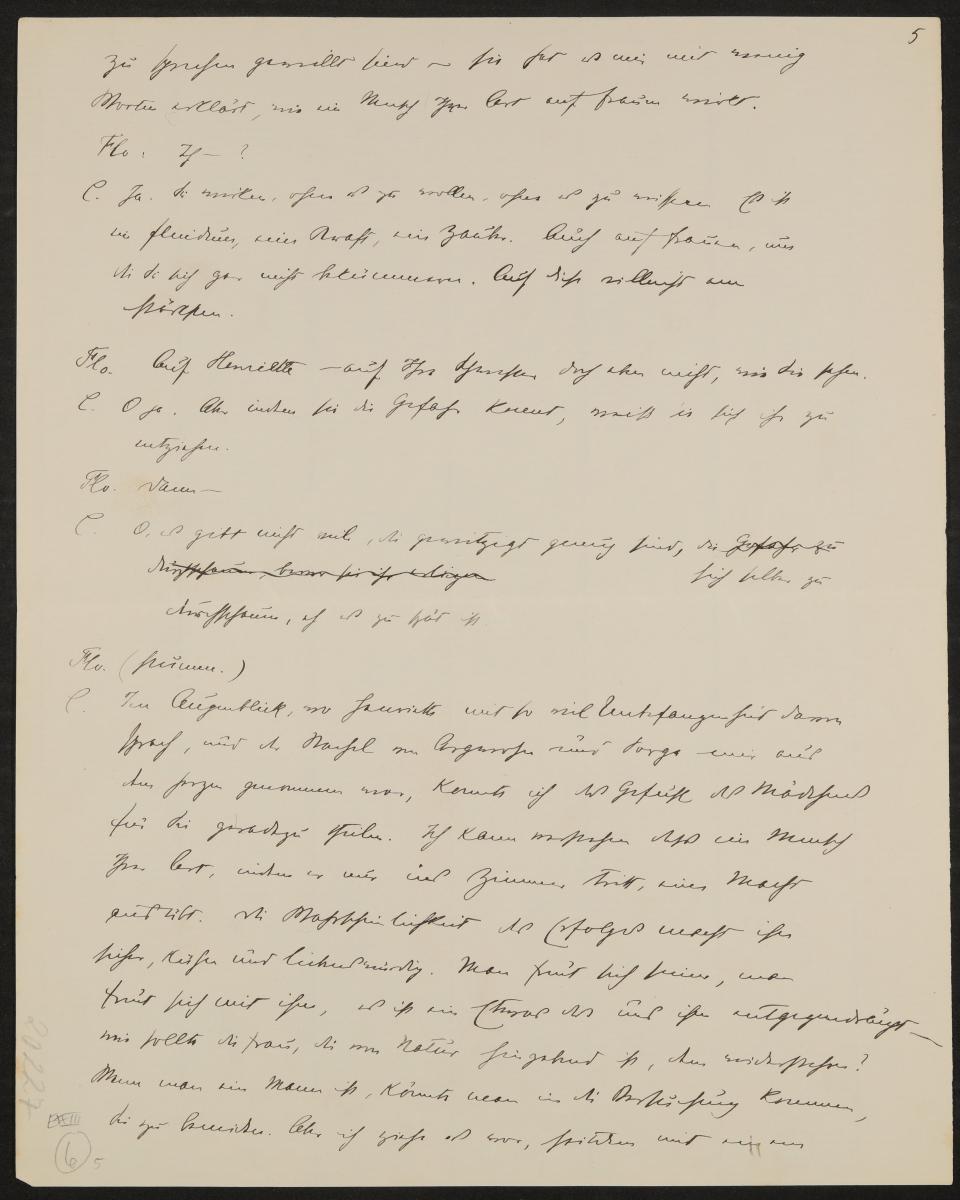 5
zu sprechen gewillt sind — sie hat es mir mit wenig
Worten erklärt, wie ein Mensch Ihrer Art auf Frauen wirkt.
Flo. Ich — ?
C. Ja. Sie wirken, ohne es zu wollen, ohne es zu wissen. Es ist
ein Fluidum, eine Kraft, ein Zauber. Auch auf Frauen, um
die Sie sich gar nicht bekümmern. Auf diese vielleicht am
stärksten.
Flo. Auf Henriette — auf Ihre Schwester doch aber nicht, wie Sie sehen.
C. O ja. Aber indem sie die Gefahr kennt, weiß sie sich ihr zu
entziehen.
Flo. Dann —
C. O, es gibt nicht viele, die gewitzigt genug sind, die Gefahr zu
durchschauen, bevor sie ihr erliegen
sich selber zu
durchschauen, eh es zu spät ist
Flo. (stumm.)
C. Im Augenblick, wo Henriette mit so viel Unbefangenheit davon
sprach, und der Stachel von Argwohn und Sorge mir aus
dem Herzen genommen war, konnte ich das Gefühl des Mädchens
für Sie geradezu theilen. Ich kann verstehen daß ein Mensch
Ihrer Art, indem er nur ins Zimmer tritt, eine Macht
ausübt. Die Wahrscheinlichkeit des Erfolges macht ihn
sicher, kühn und liebenswürdig. Man freut sich seiner, man
freut sich mit ihm, es ist ein Etwas das uns ihm entgegendrängt —
wie sollte die Frau, die von Natur hingebend ist, dem widerstehen?
Wenn man ein Mann ist, könnte man in die Versuchung kommen,
Sie zu beneiden. Aber ich ziehe es vor, seitdem mit
20227
XXIII
6
5